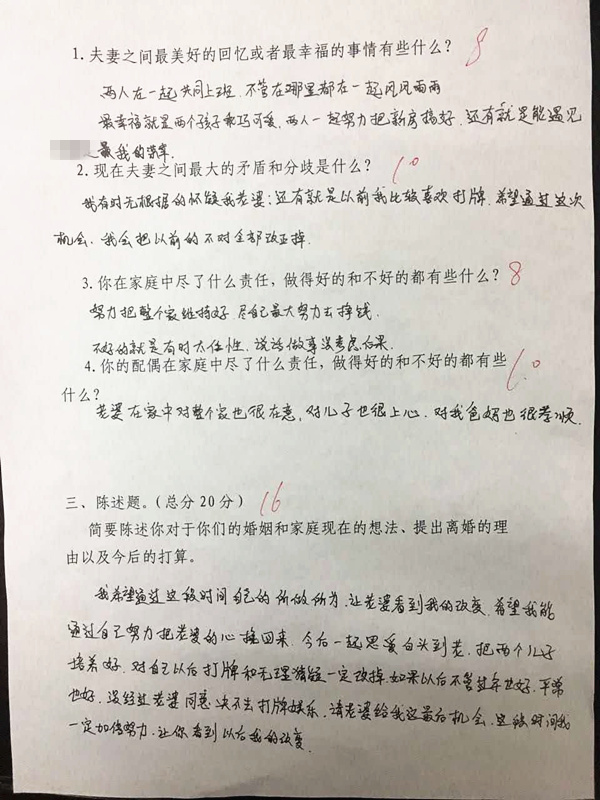 1. 夫妻之间最美好的回忆或者最幸福的事情有些什么？ 8
两人在一起共同上班，不管在哪里都在一起风风雨雨
最幸福就是两个孩子乖巧可爱，两人一起努力把新房搞好，还有就是能遇见
是我的荣幸.
2. 现在夫妻之间最大的矛盾和分歧是什么？ 10
我有时无根据的怀疑我老婆；还有就是以前我比较喜欢打牌，希望通过这次
机会，我会把以前的不对全部改正掉.
3. 你在家庭中尽了什么责任，做得好的和不好的都有些什么？ 8
努力把整个家维持好，尽自己最大努力去挣钱.
不好的就是有时太任性，说话做事没考虑后果.
4. 你的配偶在家庭中尽了什么责任，做得好的和不好的都有些 10
什么？
老婆在家中对整个家也很在意，对儿子也很上心，对我爸妈也很孝顺.
三、陈述题。（总分20分） 16
简要陈述你对于你们的婚姻和家庭现在的想法、提出离婚的理
由以及今后的打算。
我希望通过这段时间自己的所做所为，让老婆看到我的改变，希望我能
通过自己努力把老婆的心挽回来，今后一起恩爱白头到老，把两个儿子
培养好，对自己以后打牌和无理猜疑一定改掉，如果以后不管过年也好，平常
也好，没经过老婆同意决不去打牌娱乐，请老婆给我这最后机会，这段时间我
一定加倍努力，让你看到以后我的改变.